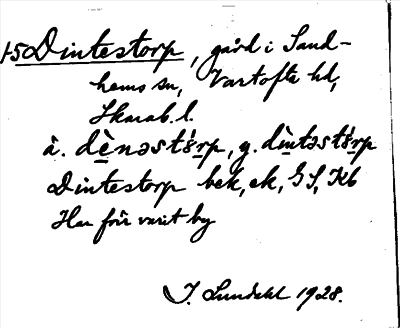 150 Dintestorp, gård i Sand-
hems sn, Vartofta hd,
Skarab. l.
å. dènəstɔ́rp, y. dìntəstɔ́rp
Dintestorp bek, ek, GS, Kb
Har förr varit by
J. Lundahl 1928.